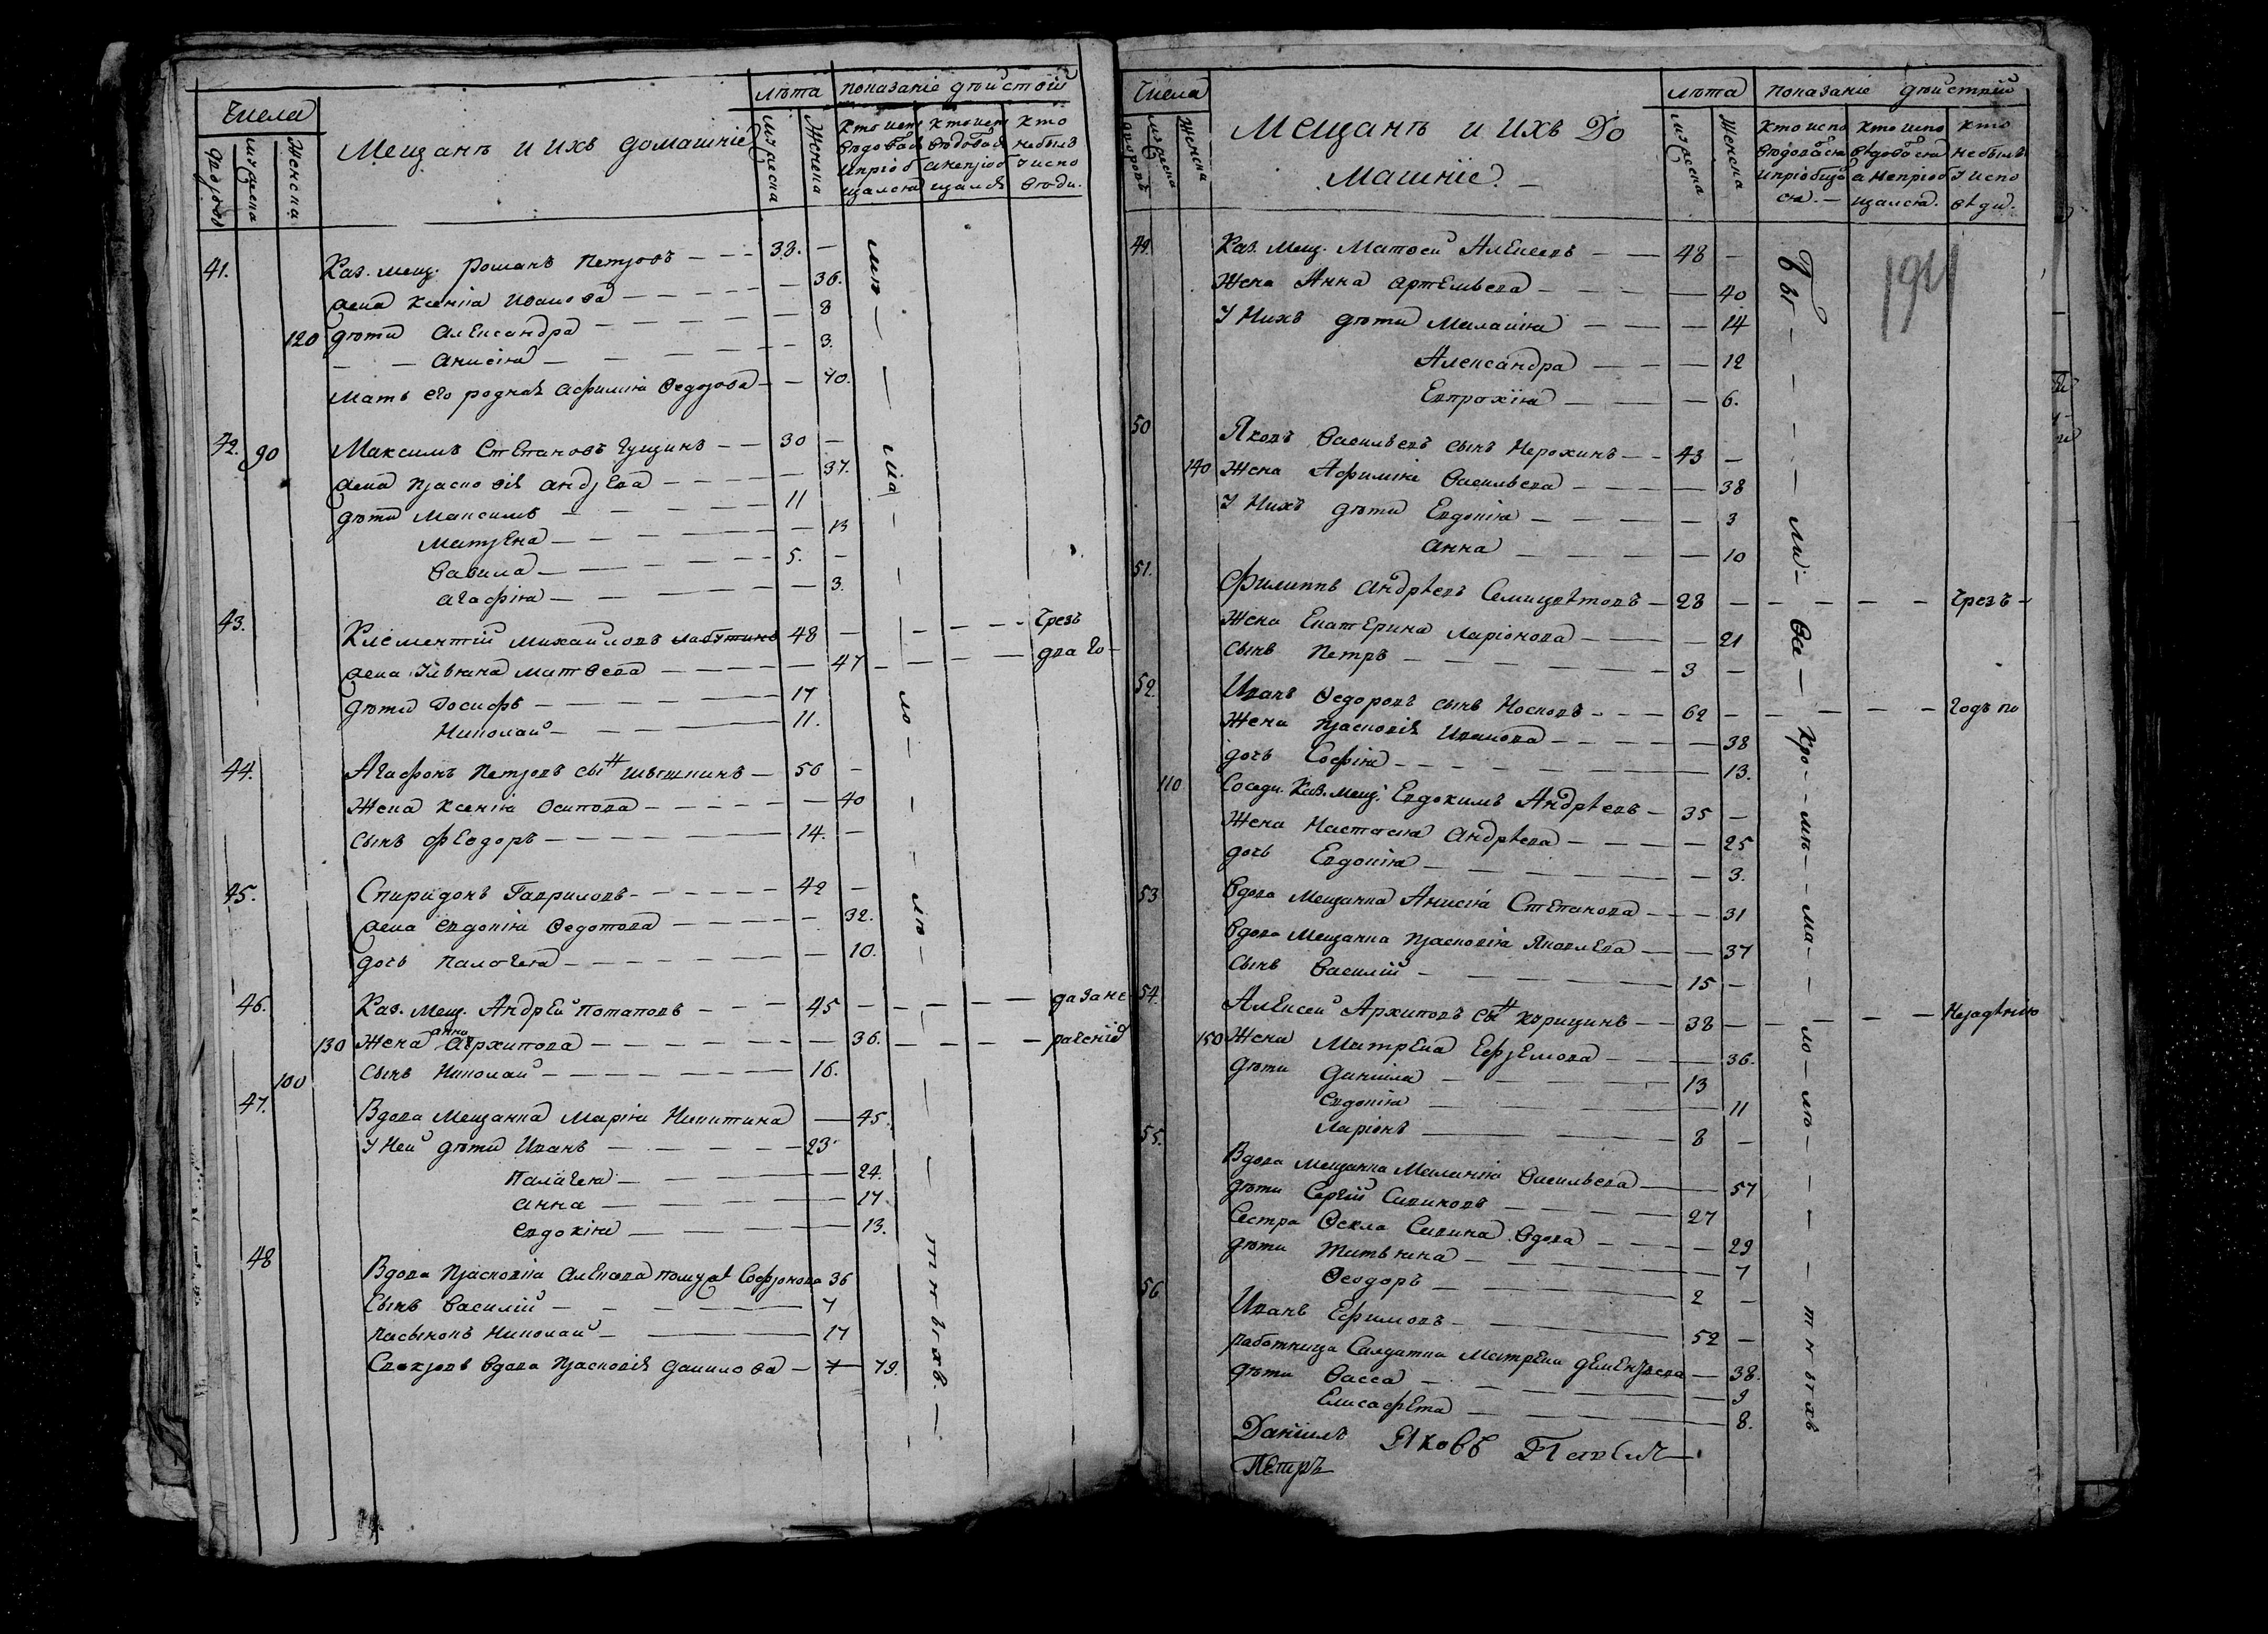 Числа
дворовъ
мужеска
женска
Мещанъ и ихъ домашніе
лѣта
мужеска
женска
показаніе дѣйствій
кто испо
вѣдовался
и пріоб
щался
кто испо
вѣдовался
а непріоб
щался
кто
небылъ
у испо
вѣди.
41. Каз. мещ. Романъ Петровъ — 33.
жена Ксенія Иванова — 36.
120 дѣти Александра — 8
Анисія — 3.
Мать его родная Афимія Ѳедорова — 70.
42. 90 Максимъ Степановъ Гущинъ — 30
жена Прасковія Андрева — 37.
дѣти Максимъ — 11
Матрена — 13
Вавила — 5.
Агафія — 3.
43. Клементій Михайловъ Лабутинъ 48 — Чрезъ
жена Ульяна Матвева — 47 — два го-
дѣти Іосифъ — 17
Николай — 11.
44. Агафонъ Петровъ сынъ — 50
Жена Ксенія Осипова — 40
Сынъ Феодоръ — 14.
45. Спиридонъ Гавриловъ — 42
жена Евдокія Ѳедотова — 32.
дочь Палагея — 10.
46. Каз. Мещ. Андрей Потаповъ — 45 — да за не-
130 Жена анна Архипова — 36. — раченіе
100 Сынъ Николай — 16.
47. Вдова Мещанка Марія Никитина — 45.
У Ней дѣти Иванъ — 23
Палагея — 24.
Анна — 17.
Евдокія — 13.
48 Вдова Прасковія Софронова 36
Сынъ Василій — 7
Пасынокъ Николай — 17
Свекровь вдова Прасковія Данилова — 79.
Числа
дворовъ
мужеска
женска
Мещанъ и ихъ До
машніе. —
лѣта
мужеска
женска
показаніе дѣйствій
кто испо
вѣдовался
и пріобщал
ся. —
кто испо
вѣдовался
а непріоб
щался.
кто
небылъ
у испо
вѣди.
194
49. Каз. Мещ. Матвей Алексеевъ — 48
Жена Анна Артемьева — 40
У Нихъ дѣти Маланія — 14
Александра — 12
Евпрахія — 6.
50 Яковъ Васильевъ сынъ Нерохинъ — 43
140 Жена Афимія Васильева — 38
У Нихъ дѣти Евдокія — 3
Анна — 10
51. Филиппъ Андреевъ Семицветовъ — 28 — Чрезъ —
Жена Екатерина Ларіонова — 21
Сынъ Петръ — 3
52. Иванъ Ѳедоровъ сынъ Носковъ — 62 — Годъ по
Жена Прасковія Иванова — 38
дочь Софія — 13.
110 Соседи. Каз. Мещ. Евдокимъ Андреевъ — 35
Жена Настасія Андреева — 25
дочь Евдокія — 3.
53 Вдова Мещанка Анисія Степанова — 31
Вдова Мещанка Прасковія Яковлева — 37
Сынъ Василій — 15
54. Алексей Архиповъ сынъ Курицинъ — 38 — Нерадѣнію
150 Жена Матрена Ефремова — 36.
дѣти Данила — 13
Евдокія — 11
Ларіонъ — 8
55. Вдова Мещанка Маланія Васильева — 57
дѣти Сергій Савиновъ — 27
Сестра Ѳекла Савина вдова — 29
дѣти Татьяна — 7
Ѳеодоръ — 2
56 Иванъ Ефимовъ — 52
Работница Салдатка Матрена Дементьева — 38.
дѣти Васса — 9
Елисафета — 8.
Даніилъ Яковъ Павелъ
Петръ